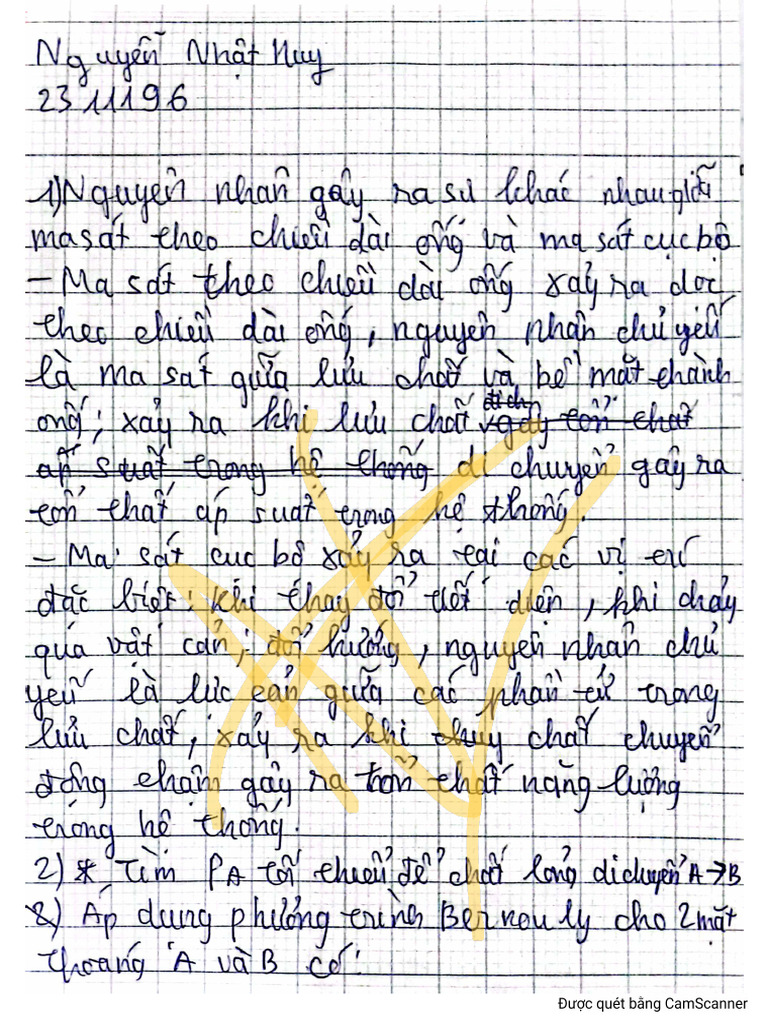 Nguyễn Nhật Huy
2311196
1) Nguyên nhân gây ra sự khác nhau giữa
ma sát theo chiều dài ống và ma sát cục bộ
- Ma sát theo chiều dài ống xảy ra dọc
theo chiều dài ống, nguyên nhân chủ yếu
là ma sát giữa lưu chất và bề mặt thành
ống; xảy ra khi lưu chất gây tổn thất
áp suất trong hệ thống di chuyển gây ra
tổn thất áp suất trong hệ thống.
- Ma sát cục bộ xảy ra tại các vị trí
đặc biệt: khi thay đổi tiết diện, khi chảy
qua vật cản; đổi hướng, nguyên nhân chủ
yếu là lực cản giữa các phần tử trong
lưu chất; xảy ra khi thuy chất chuyển
động chậm gây ra tổn thất năng lượng
trong hệ thống.
2) * Tìm PA tối thiểu để chất lỏng di chuyển A→B
8) Áp dụng phương trình Bernouly cho 2 mặt
thoáng A và B có:
Được quét bằng CamScanner